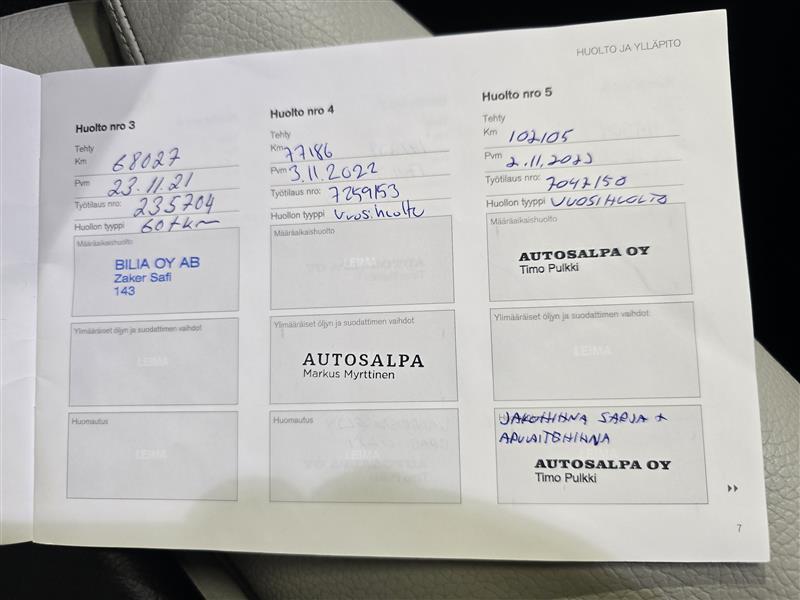 HUOLTO JA YLLÄPITO
Huolto nro 3
Tehty
Km 68027
Pvm 23.11.21
Työtilaus nro: 235704
Huollon tyyppi 60tkm
Määräaikaishuolto
BILIA OY AB
Zaker Safi
143
Ylimääräiset öljyn ja suodattimen vaihdot
LEIMA
Huomautus
LEIMA
Huolto nro 4
Tehty
Km 77186
Pvm 3.11.2022
Työtilaus nro: 7259153
Huollon tyyppi Vuosihuolto
Määräaikaishuolto
LEIMA
AUTOSALPA
Markus Myrttinen
Huomautus
LEIMA
Huolto nro 5
Tehty
Km 102105
Pvm 2.11.2023
Työtilaus nro: 7042150
Huollon tyyppi VUOSIHUOLTO
Määräaikaishuolto
AUTOSALPA OY
Timo Pulkki
Ylimääräiset öljyn ja suodattimen vaihdot
LEIMA
JAKOHIHNA SARJA +
APULAITEHIHNA
AUTOSALPA OY
Timo Pulkki
7